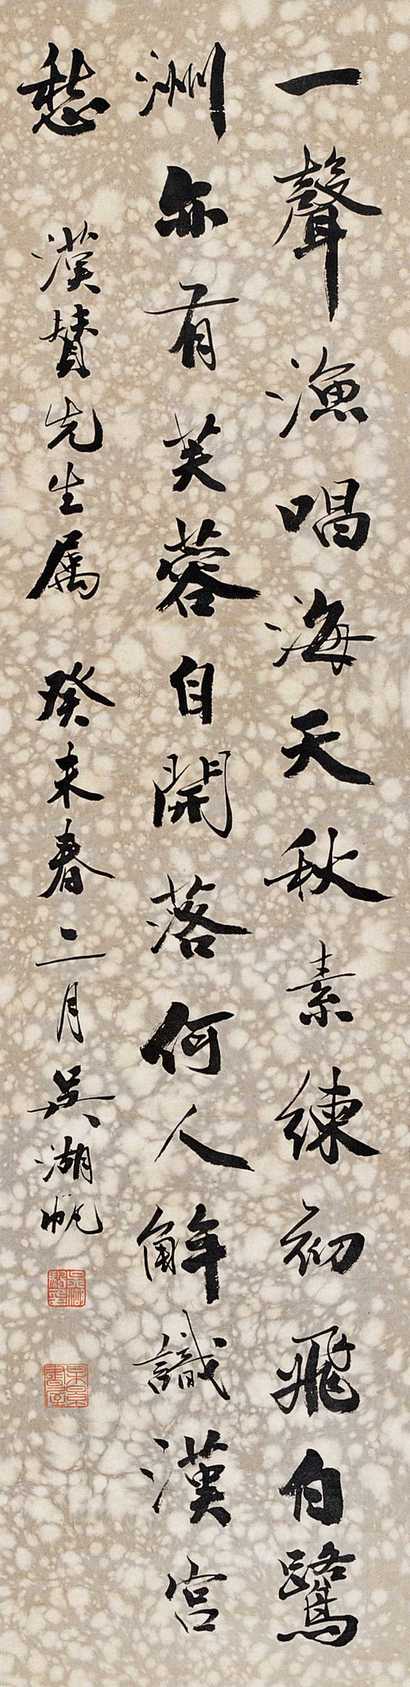 一聲漁唱海天秋素練初飛白鷺
洲亦有芙蓉自開落何人解識漢宮
愁 漢贊先生属 癸未春二月吳湖帆